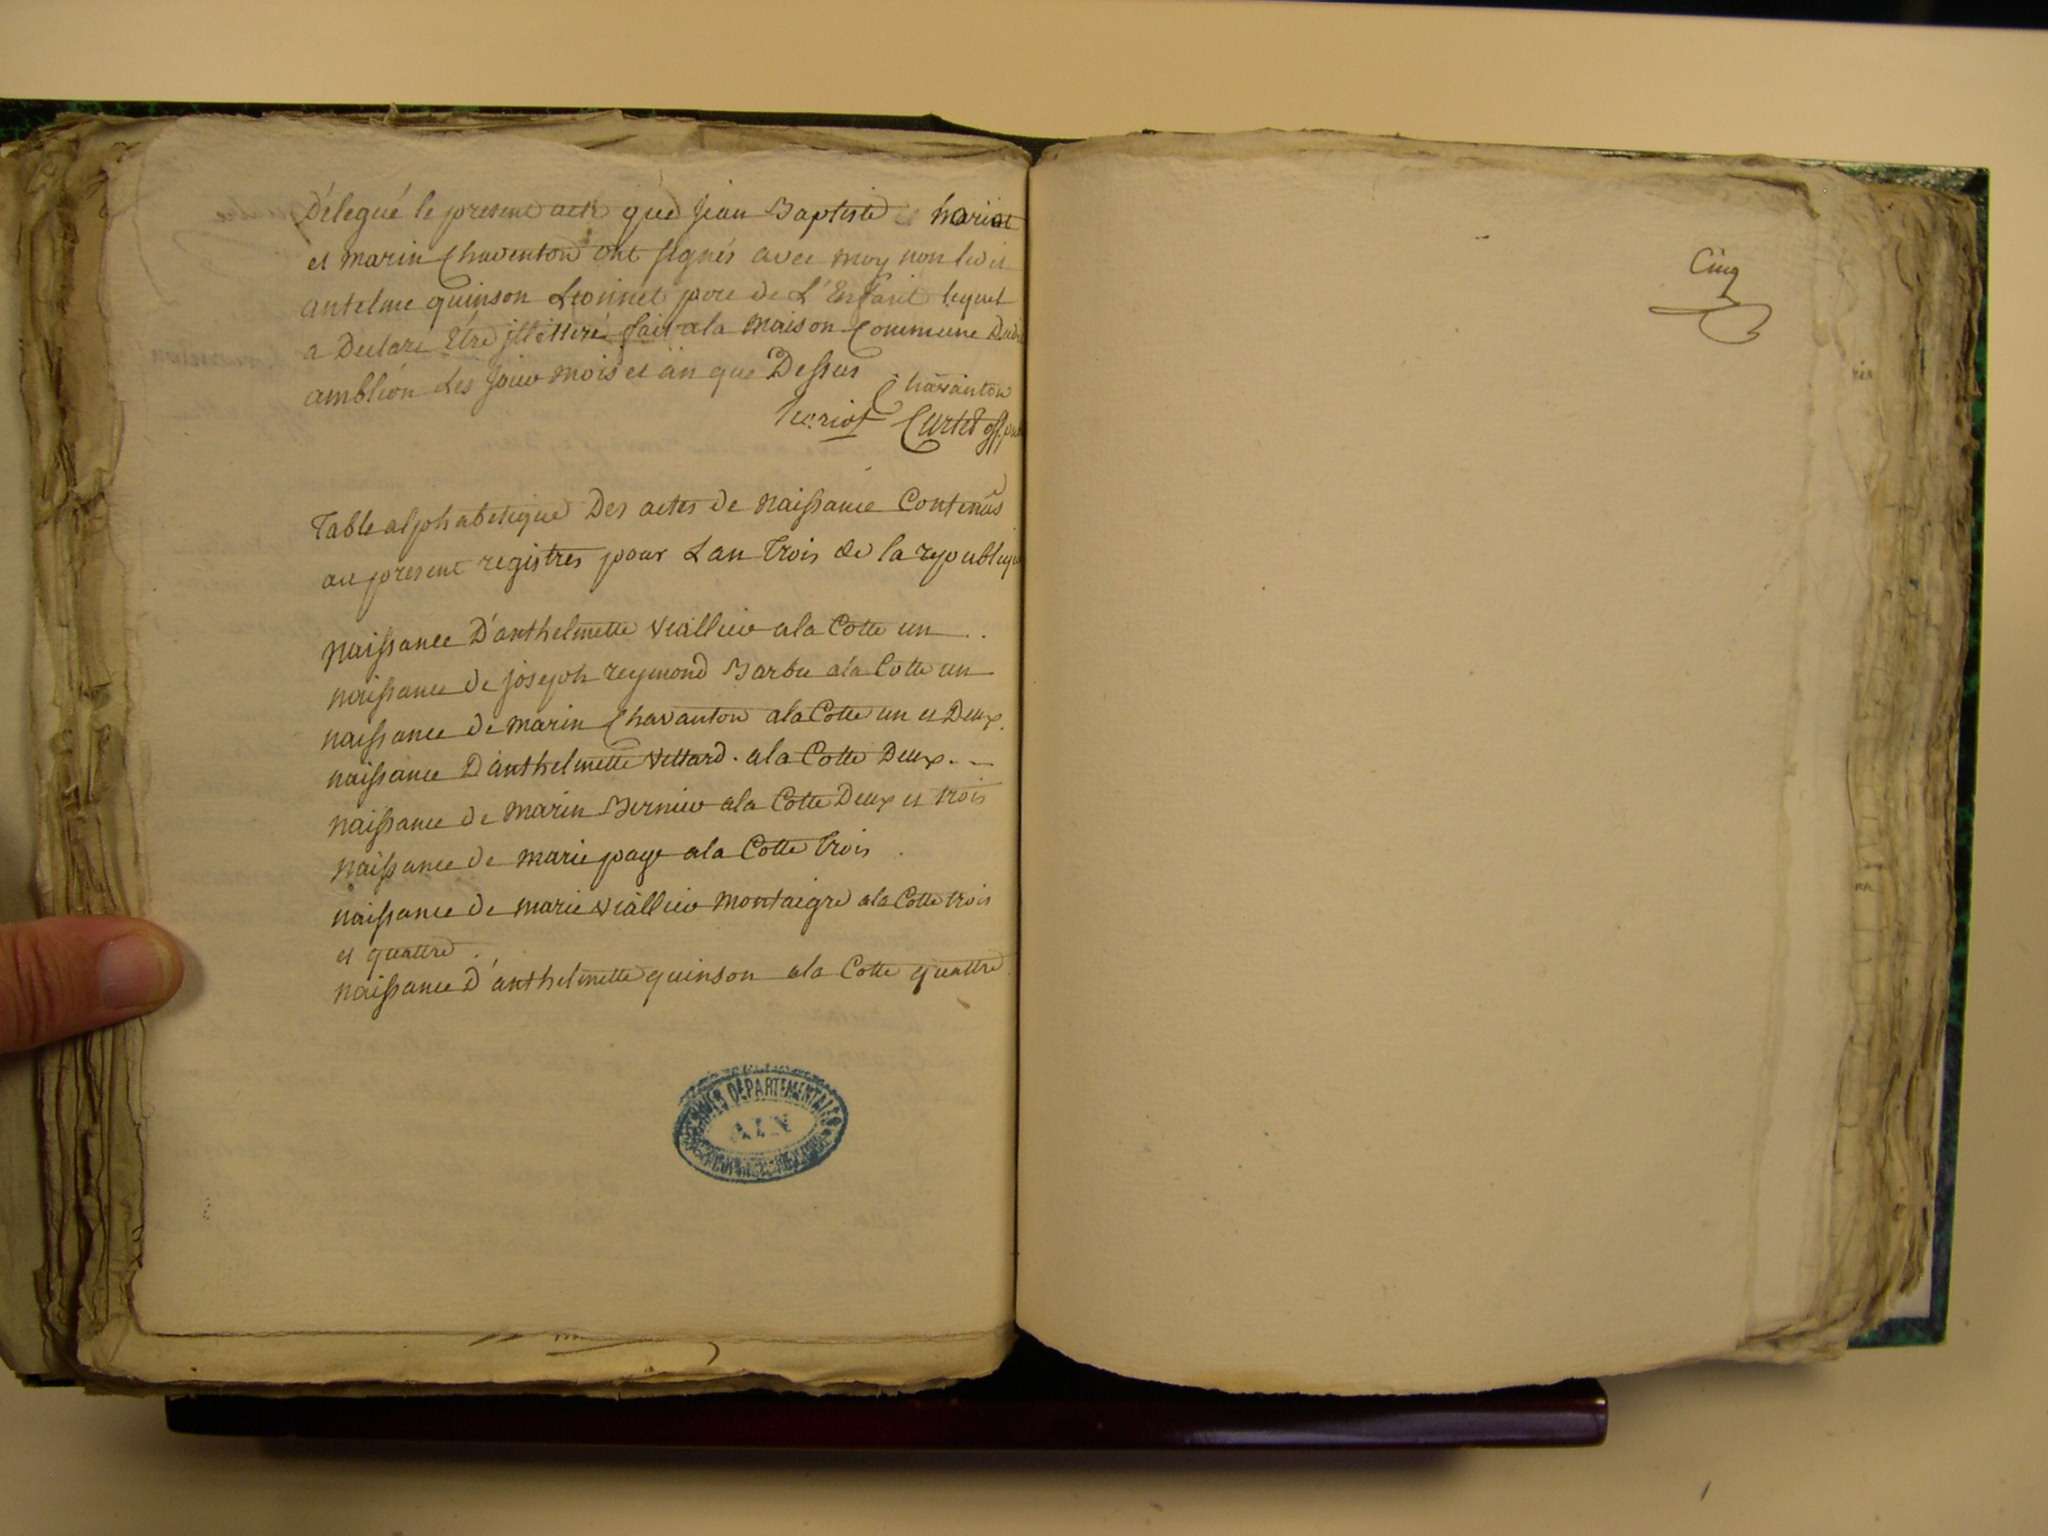 Délegué le present acte que Jean Baptiste heriot
et marin Chaventon ont signés avec moy non led it
antelme quinson Leonnet pere de L'Enfant lequel
a Declaré Etre jlletteré fait a la maison Commune Dud
amblëon Les Jour mois et an que Dessus Chavanton
heriot Curtet off
Table alphabetique Des actes de naissance Contenus
au present registres pour Lan trois de la republiq
naissance D'anthelmette viallier a la Cotte un
naissance de joseph reymond Barbu a la Cotte un
naissance de marin Chavanton a la Cotte un et Deux
naissance D'anthelmette vettard a la Cotte Deux
naissance de marin Bernier a la Cotte Deux et trois
naissance de marie page a la Cotte trois
naissance de marie viallier montaigre a la Cotte trois
et quattre
naissance D'anthelmette quinson a la Cotte quattre
ARCHIVES DÉPARTEMENTALES
AIN
Cinq